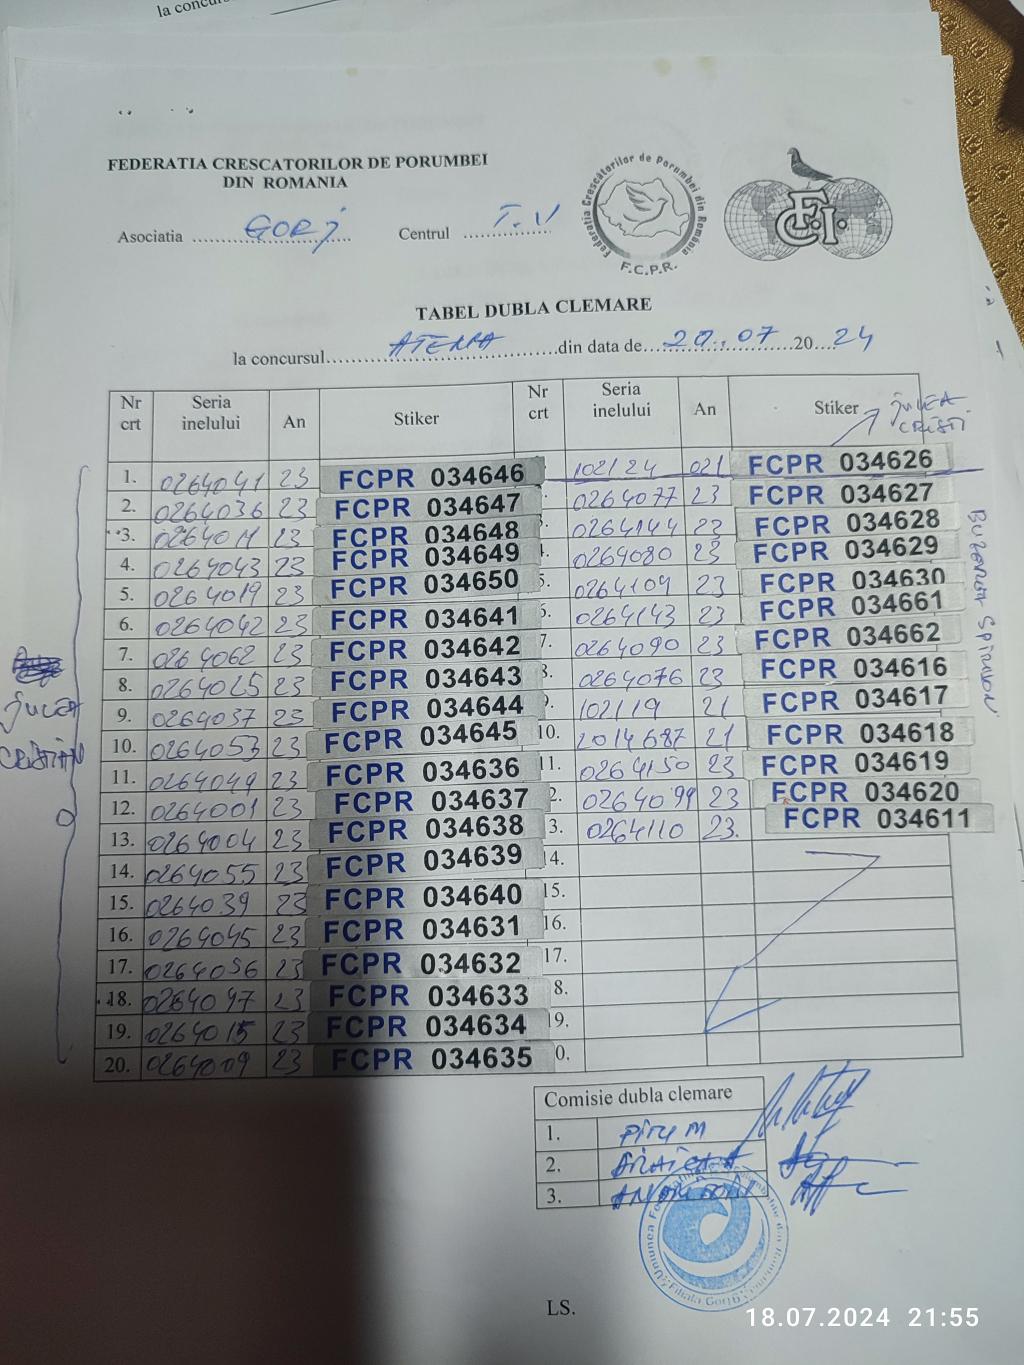 la concu
FEDERATIA CRESCATORILOR DE PORUMBEI
DIN ROMANIA
Federatia Crescătorilor de Porumbei din România
F.C.P.R.
FCI
Asociatia GORJ Centrul T.V
TABEL DUBLA CLEMARE
la concursul ATENA din data de 20.07 2024
Nr crt Seria inelului An Stiker Nr crt Seria inelului An Stiker
JUCEA CRISTI
1. 0264041 23 FCPR 034646 102124 021 FCPR 034626
2. 0264036 23 FCPR 034647 0264077 23 FCPR 034627
3. 0264011 23 FCPR 034648 3. 0264144 23 FCPR 034628
4. 0264043 23 FCPR 034649 0264080 23 FCPR 034629
5. 0264019 23 FCPR 034650 5. 0264109 23 FCPR 034630
6. 0264042 23 FCPR 034641 6. 0264143 23 FCPR 034661
7. 0264062 23 FCPR 034642 7. 0264090 23 FCPR 034662
8. 0264025 23 FCPR 034643 8. 0264076 23 FCPR 034616
9. 0264037 23 FCPR 034644 9. 102119 21 FCPR 034617
10. 0264053 23 FCPR 034645 10. 2014687 21 FCPR 034618
11. 0264049 23 FCPR 034636 11. 0264150 23 FCPR 034619
12. 0264001 23 FCPR 034637 2. 0264099 23 FCPR 034620
13. 0264004 23 FCPR 034638 3. 0264110 23. FCPR 034611
14. 0264055 23 FCPR 034639 14.
15. 0264039 23 FCPR 034640 15.
16. 0264045 23 FCPR 034631 16.
17. 0264056 23 FCPR 034632 17.
18. 0264047 23 FCPR 034633 8.
19. 0264015 23 FCPR 034634 19.
20. 0264009 23 FCPR 034635 0.
JUCEA
CRISTIAN
Comisie dubla clemare
1. PITU M
2.
3.
LS.
18.07.2024 21:55